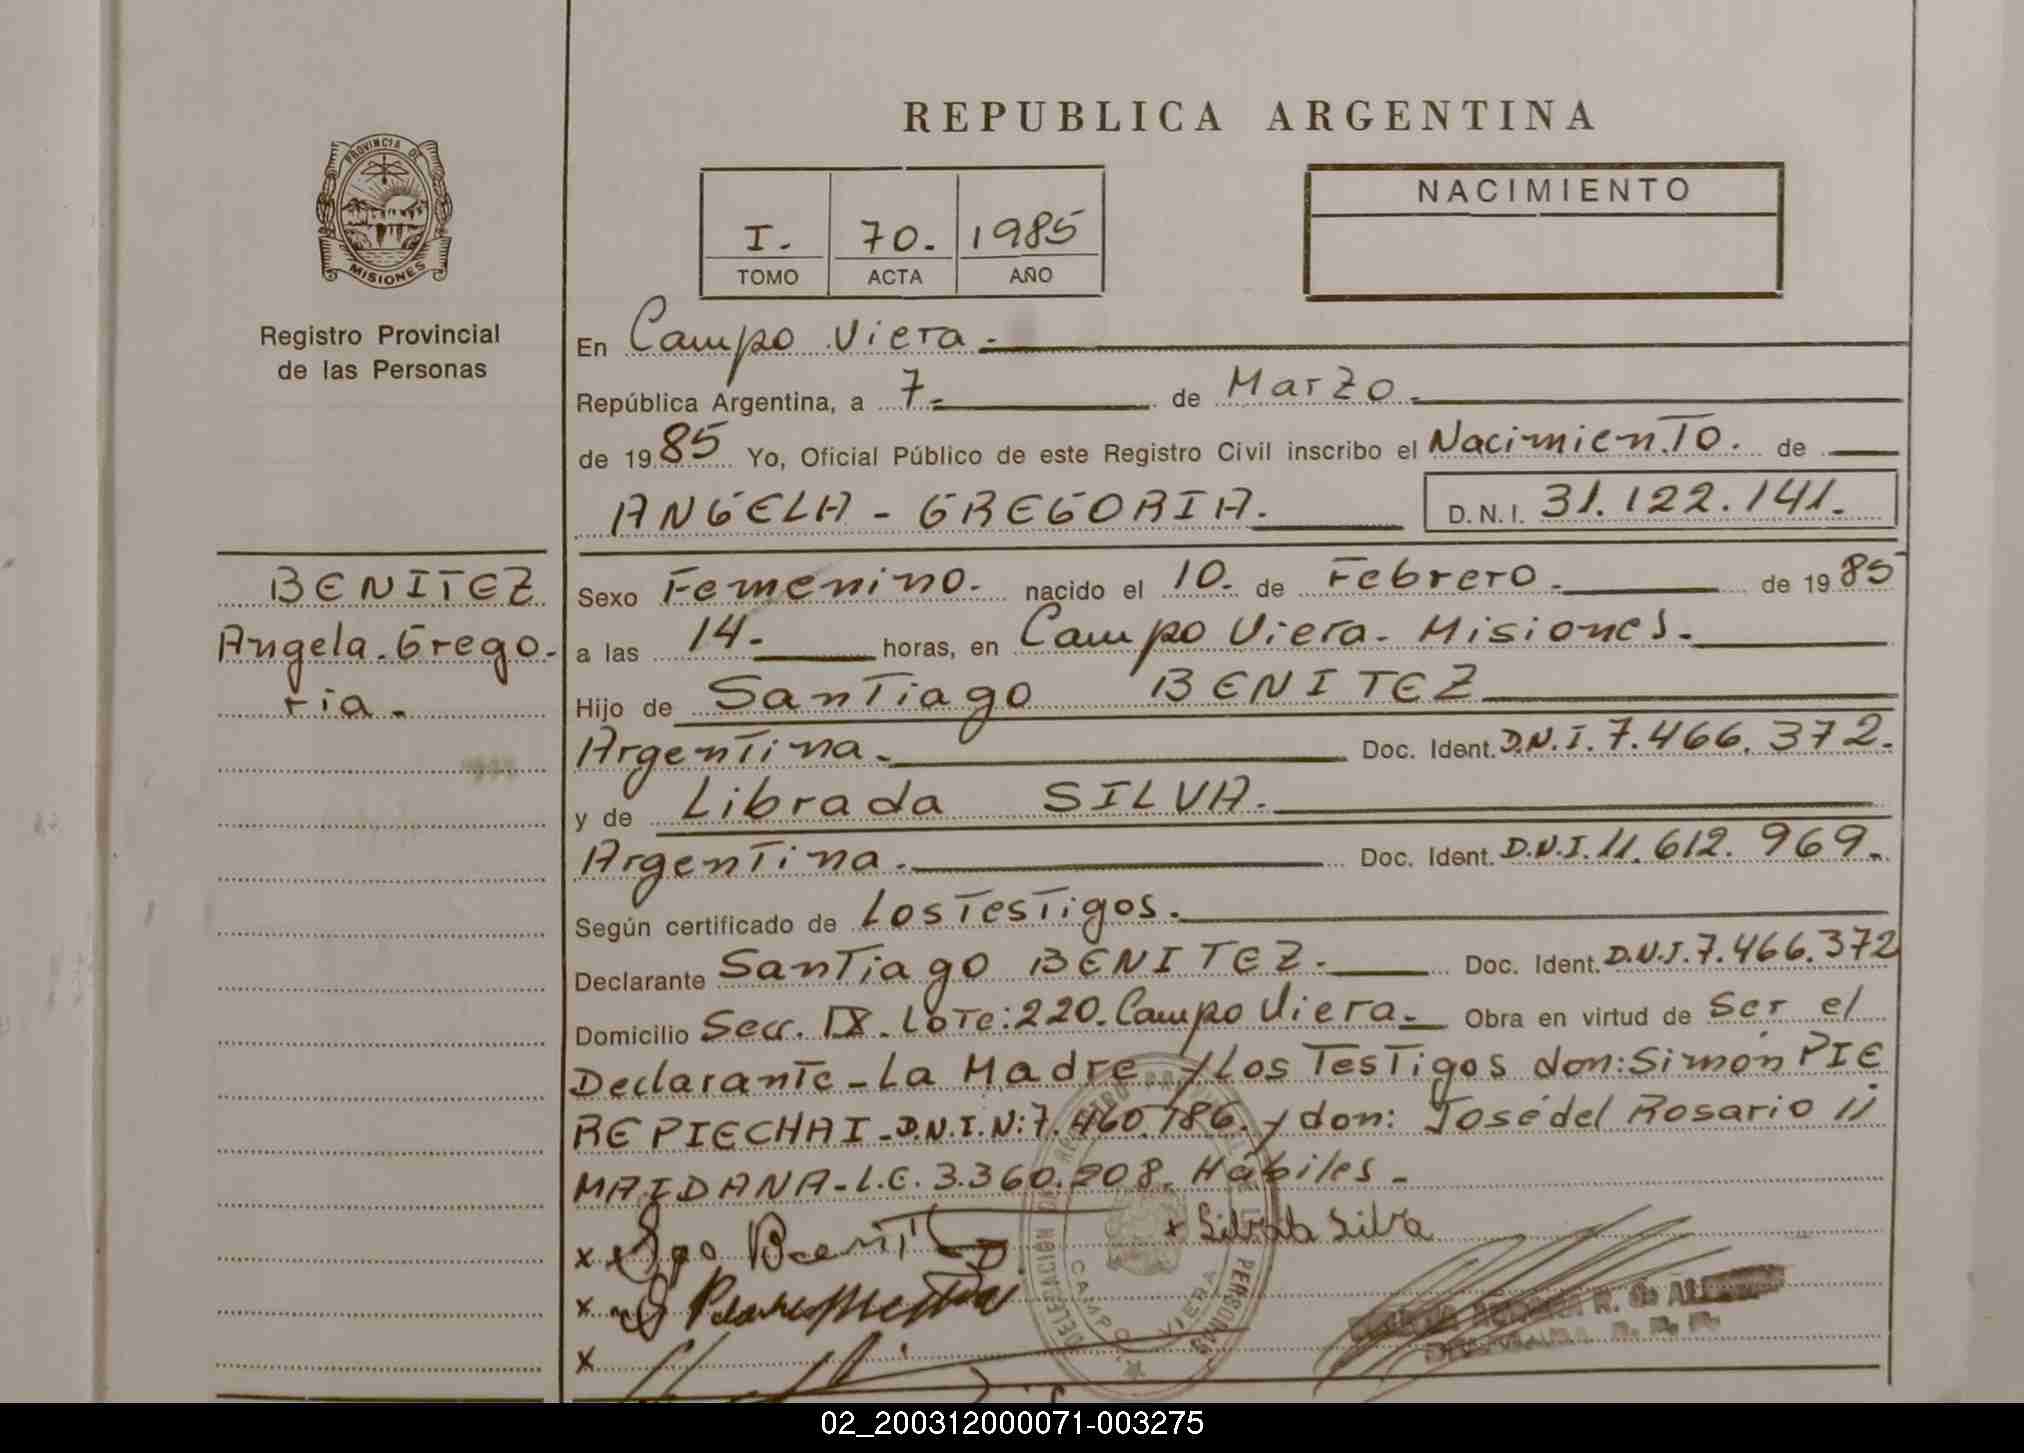 REPUBLICA ARGENTINA
PROVINCIA DE
MISIONES
Registro Provincial
de las Personas
I. 70. 1985
TOMO ACTA AÑO
NACIMIENTO
En Campo Viera.
República Argentina, a 7. de Marzo.
de 1985 Yo, Oficial Público de este Registro Civil inscribo el Nacimiento. de
ANGELA - GREGORIA. D.N.I. 31.122.141.
BENITEZ
Angela Grego-
ria.
Sexo Femenino. nacido el 10. de Febrero. de 1985
a las 14. horas, en Campo Viera. Misiones.
Hijo de Santiago BENITEZ
Argentina. Doc. Ident. D.N.I. 7.466.372.
y de Librada SILVA.
Argentina. Doc. Ident. D.N.I. 11.612.969.
Según certificado de Los Testigos.
Declarante Santiago BENITEZ. Doc. Ident. D.N.I. 7.466.372
Domicilio Secc. IX. Lote: 220. Campo Viera. Obra en virtud de Ser el
Declarante - La Madre y Los Testigos don: Simón PIE
REPIECHAI - D.N.I. N: 7.460.786. y don: José del Rosario //
MAIDANA - L.E. 3.360.208. Hábiles.
x
x Silva
x
x
DELEGACIÓN DEL REGISTRO PROVINCIAL DE LAS PERSONAS
CAMPO VIERA
02_200312000071-003275